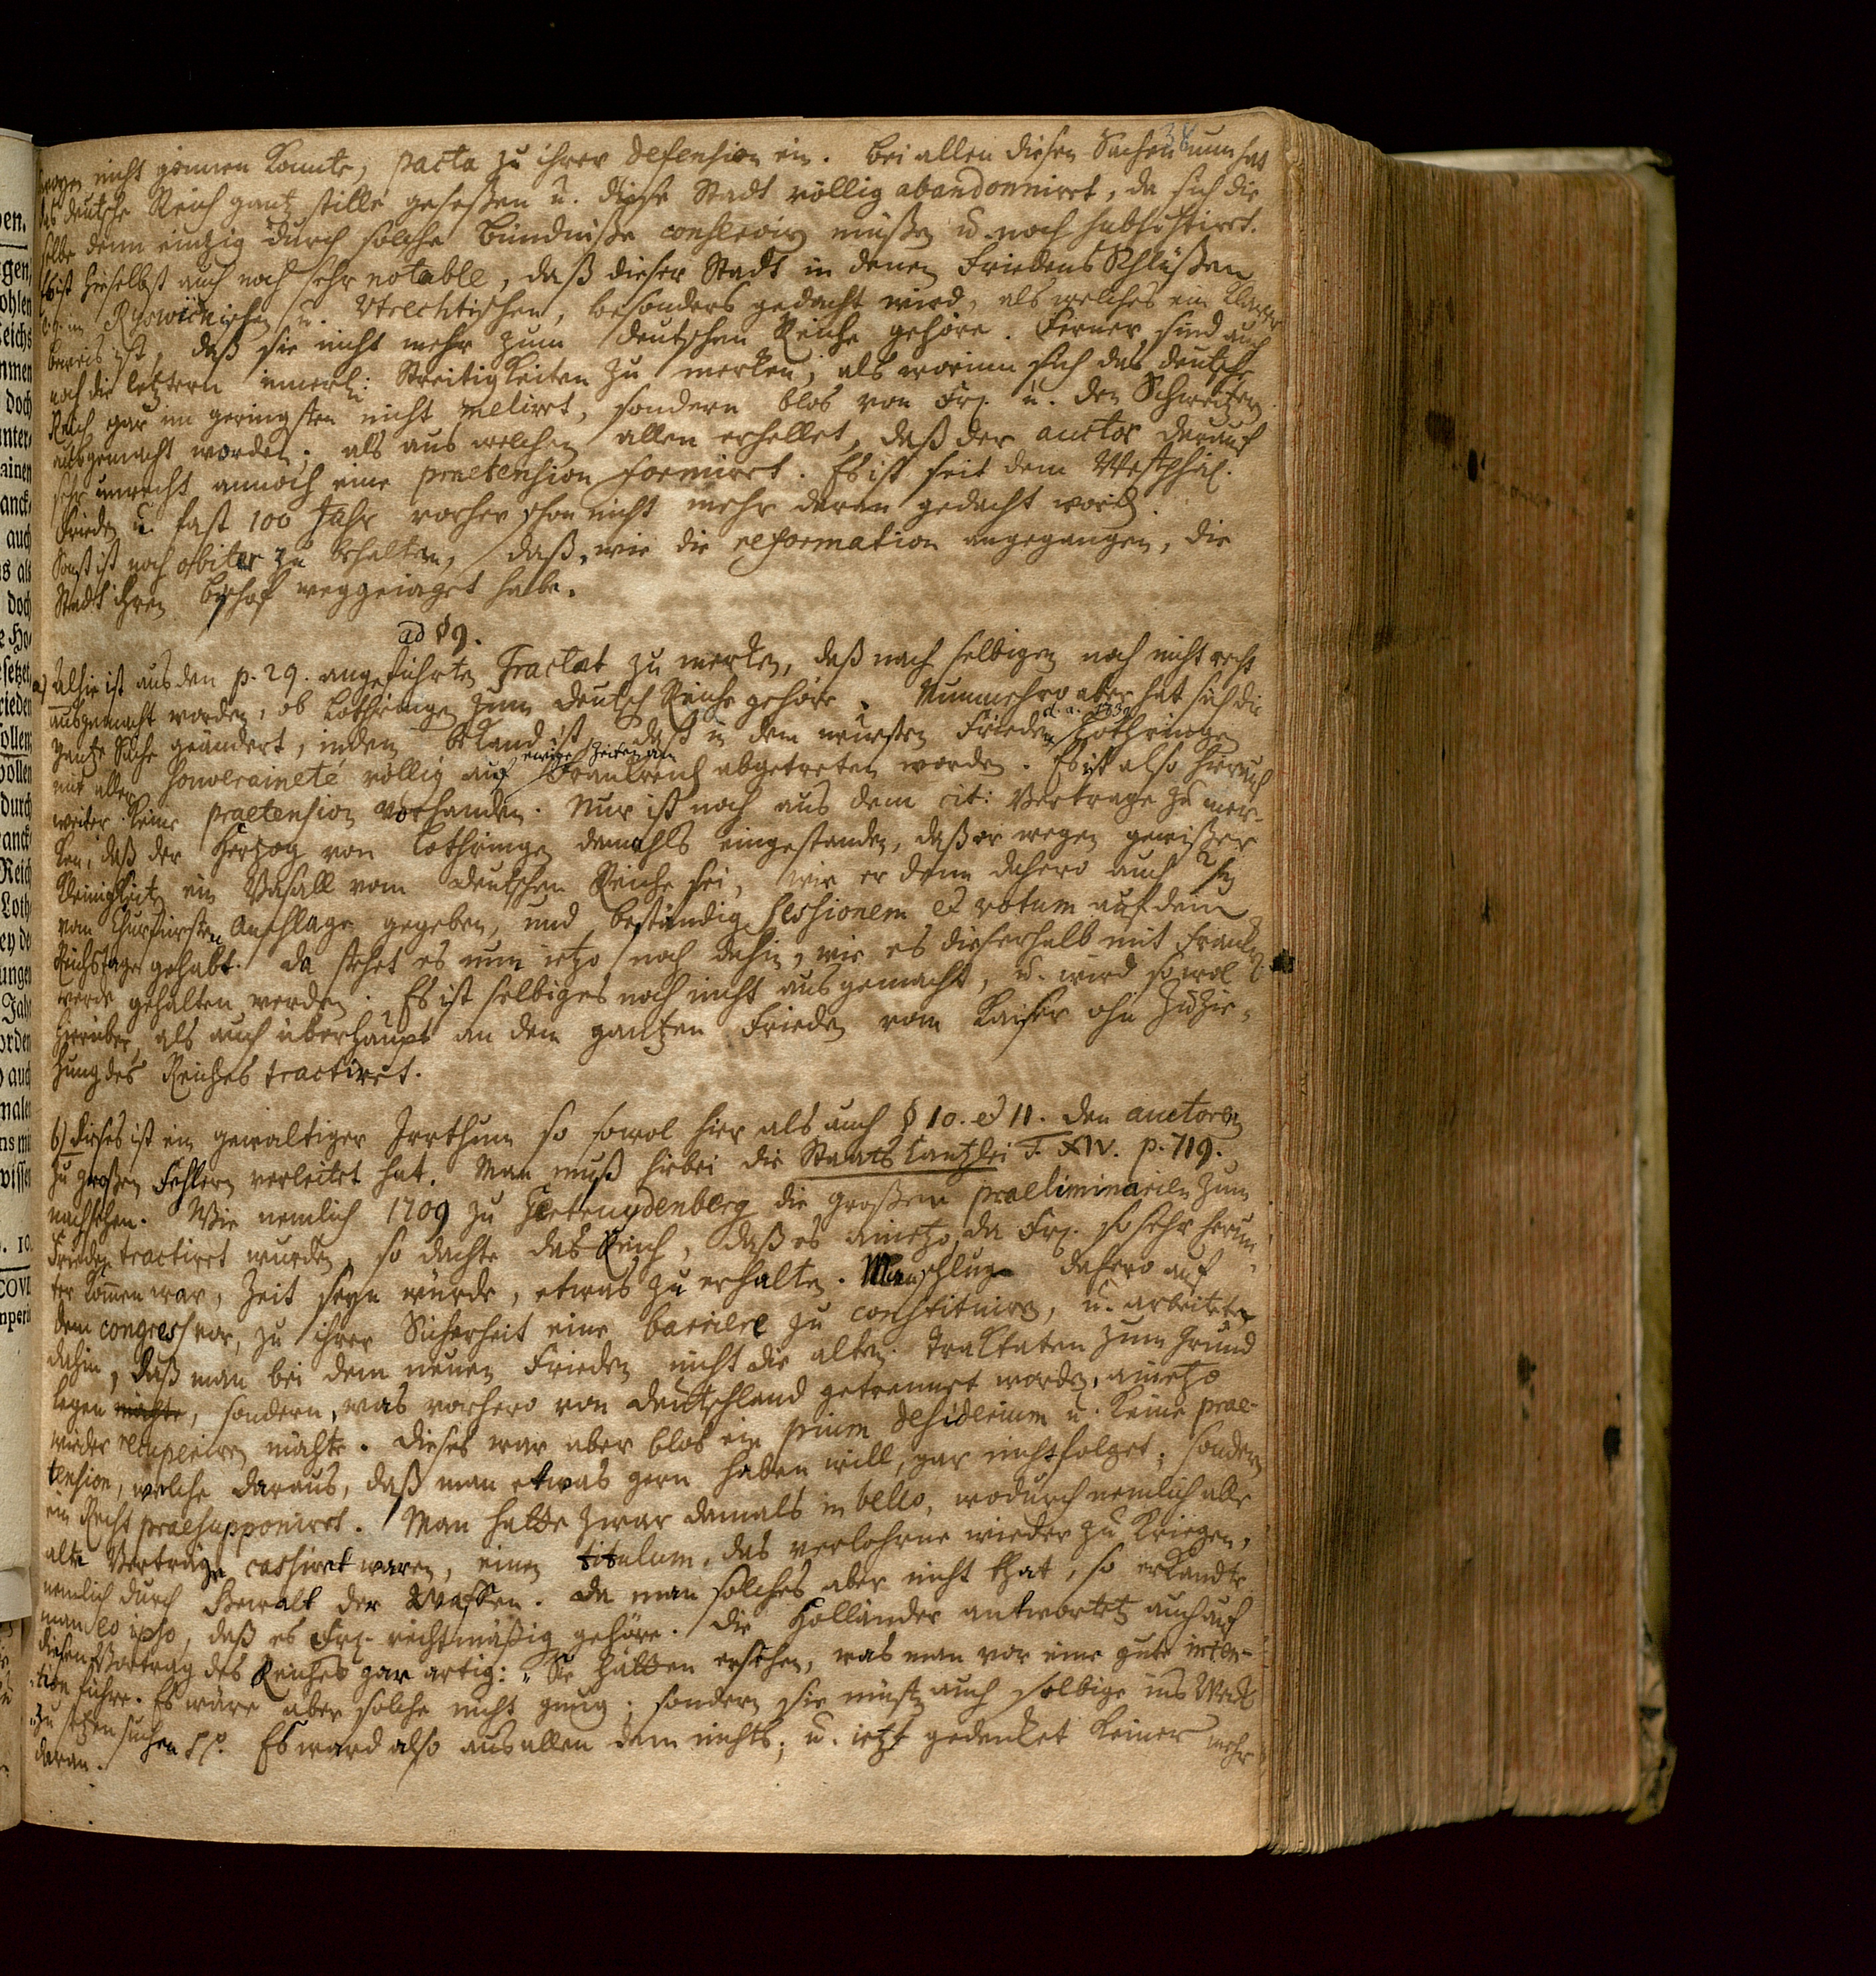 38
nicht gönnen konte, pacta zu ihrer defension ein. Bei allen diesen Sachen nun hat
das deutsche Reich gantz stille geseßen u. diese Stadt völlig abandonniret, da sich die
selbe denn eintzig durch solche Bündniße conserviren müßen u. noch subsistiret.
Es ist hieselbst auch noch sehr notable, daß dieser Stadt in denen Friedens Schlüßen
im Ryswickischen u. Utrechtischen, besonders gedacht wird, als welches ein klarer
beweis ist, daß sie nicht mehr zum deutschen Reiche gehöre. Ferner sind auch
noch die letztern innerl: Streitigkeiten zu merken, als worinn sich das deutsche
Reich gar im geringsten nicht meliret, sondern blos von Frz. u. den Schweitzern
ausgemacht worden; als aus welchen allen erhellet, daß der auctor darauf
sehr unrecht annoch eine praetension formiret. Es ist seit dem Westphäl.
Frieden u. fast 100 Jahr vorher schon nicht mehr daran gedacht word.
Sonst ist noch obiter zu behalten, daß, wie die reformation angegangen, die
Stadt ihren Bischof weggejaget habe.
ad § 9.
a) Alhie ist aus den p. 29. angeführten Tractat zu merken, daß nach selbigen noch nicht recht
ausgemacht worden, ob Lothringen zum deutsch Reiche gehöre. Nunmehro aber hat sich die
gantze Sache geändert, indem bekand ist, daß in dem neuesten Frieden d. a. Lothringen
mit aller souveraineté völlig auf ewige Zeiten an Frankreich abgetreten worden. Es ist also hierauf
weiter keine praetension vorhanden. Nur ist noch aus dem cit: Vertrage zu mer-
ken, daß der Hertzog von Lothringen damahls eingestanden, daß er wegen gewißer
Kleinigkeiten ein Vasall vom deutschen Reiche sei, wie er denn dahero auch
vom Churfürsten Anschlage gegeben, und beständig sessionem et votum auf dem
Reichstage gehabt. Da stehet es nun ietzo noch dahin, wie es dieserhalb mit Frankr.
werde gehalten werden. Es ist selbiges noch nicht ausgemacht, u. wird sowol
hierüber als auch überhaupt an dem gantzen Frieden vom Kaiser ohne Zuzie-
hung des Reiches tractiret.
b) Dieses ist ein gewaltiger Irrthum so sowol hier als auch § 10. et 11. den auctoren
zu großen Fehlern verleitet hat. Man muß hiebei die Staats Cantzlei T. XIV. p. 719.
nachsehen. Wie nemlich 1709 zu Gertruydenberg die großen praeliminarien zum
Frieden tractiret wurden, so dachte das Reich, daß es anietzo, da Frz. so sehr herun-
ter kommen war, Zeit seyn würde, etwas zu erhalten. Man schlug dahero auf
dem congress vor, zu ihrer Sicherheit eine barriere zu constituiren, u. arbeitete
dahin, daß man bei dem neuen Frieden nicht die alten Traktaten zum Grund
legen möchte, sondern, was vorhero von Deutschland getrennet worden, anietzo
wieder recuperiren möchte. Dieses war aber blos ein pium desiderium u. keine prae-
tension, welche daraus, daß man etwas gern haben will, gar nicht folget; sondern
ein Recht praesupponiret. Man hatte zwar damals in bello, wodurch nemlich alle
alte Verträge cassiret waren, einen titulum, das verlohrne wieder zu kriegen,
nemlich durch Gewalt der Waffen. Da man solches aber nicht that, so erkandte
man eo ipso, daß es Frz. rechtmäßig gehöre. Die Holländer antworteten auch auf
diesen Vortrag des Reiches gar artig: „Sie hätten ersehen, was man vor eine gute inten-
„tion führe. Es wäre aber solche nicht gnug; sondern sie müsten auch selbige ins Werk
„zu setzen suchen pp. Es ward also aus allen dem nichts; u. ietzt gedenket keiner mehr
daran.